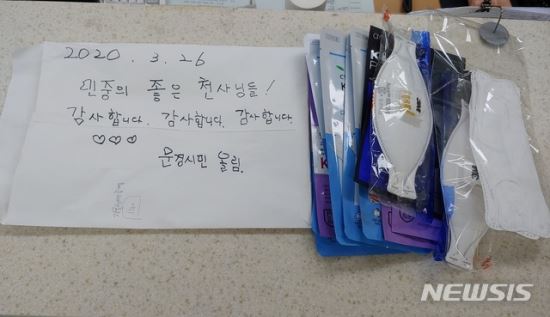 2020. 3. 26
민중의 좋은 천사님들!
감사합니다. 감사합니다. 감사합니다.
♡♡♡
문경시민 올림.
NEWSIS